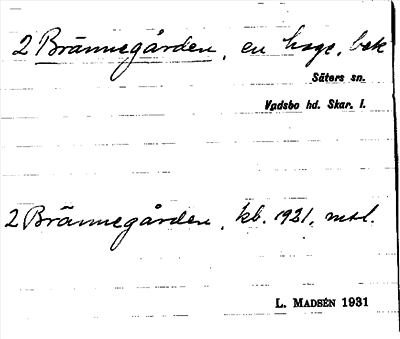 2 Brännegården, en hage, bek
Säters sn.
Vadsbo hd. Skar. l.
2 Brännegården, kb. 1921. mtl.
L. MADSÉN 1931